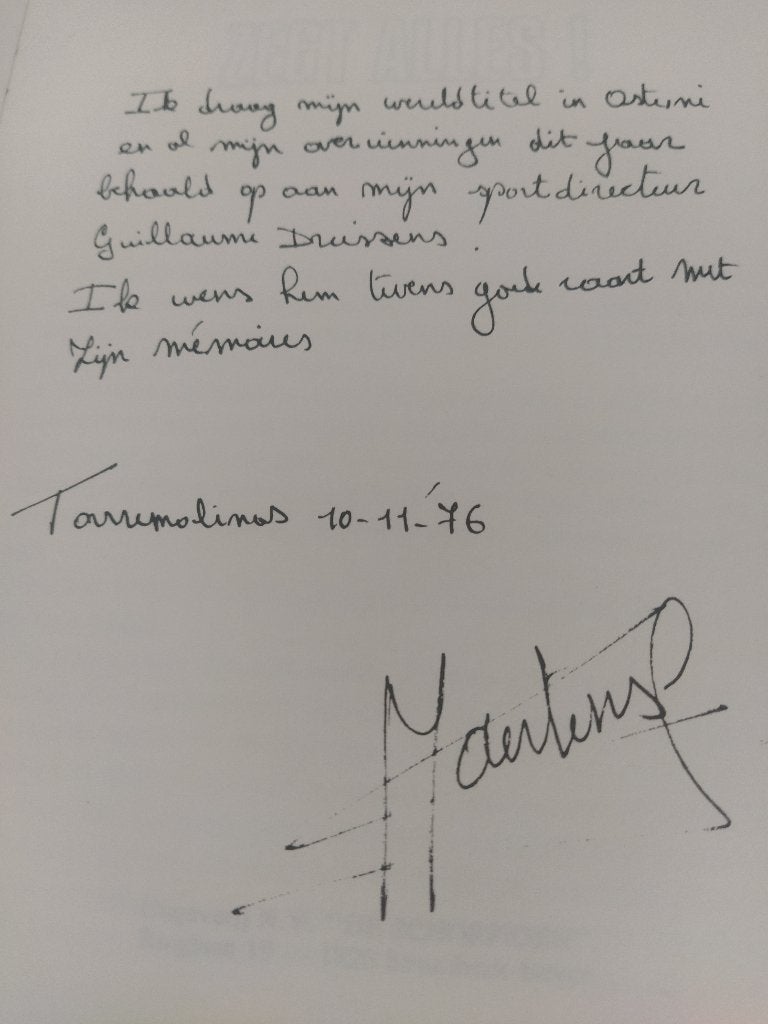 Ik draag mijn wereldtitel in Ostuni
en al mijn overwinningen dit jaar
behaald op aan mijn sportdirecteur
Guillaume Driessens.
Ik wens hem tevens goede vaart met
zijn mémoires
Torremolinos 10-11-'76
Maertens